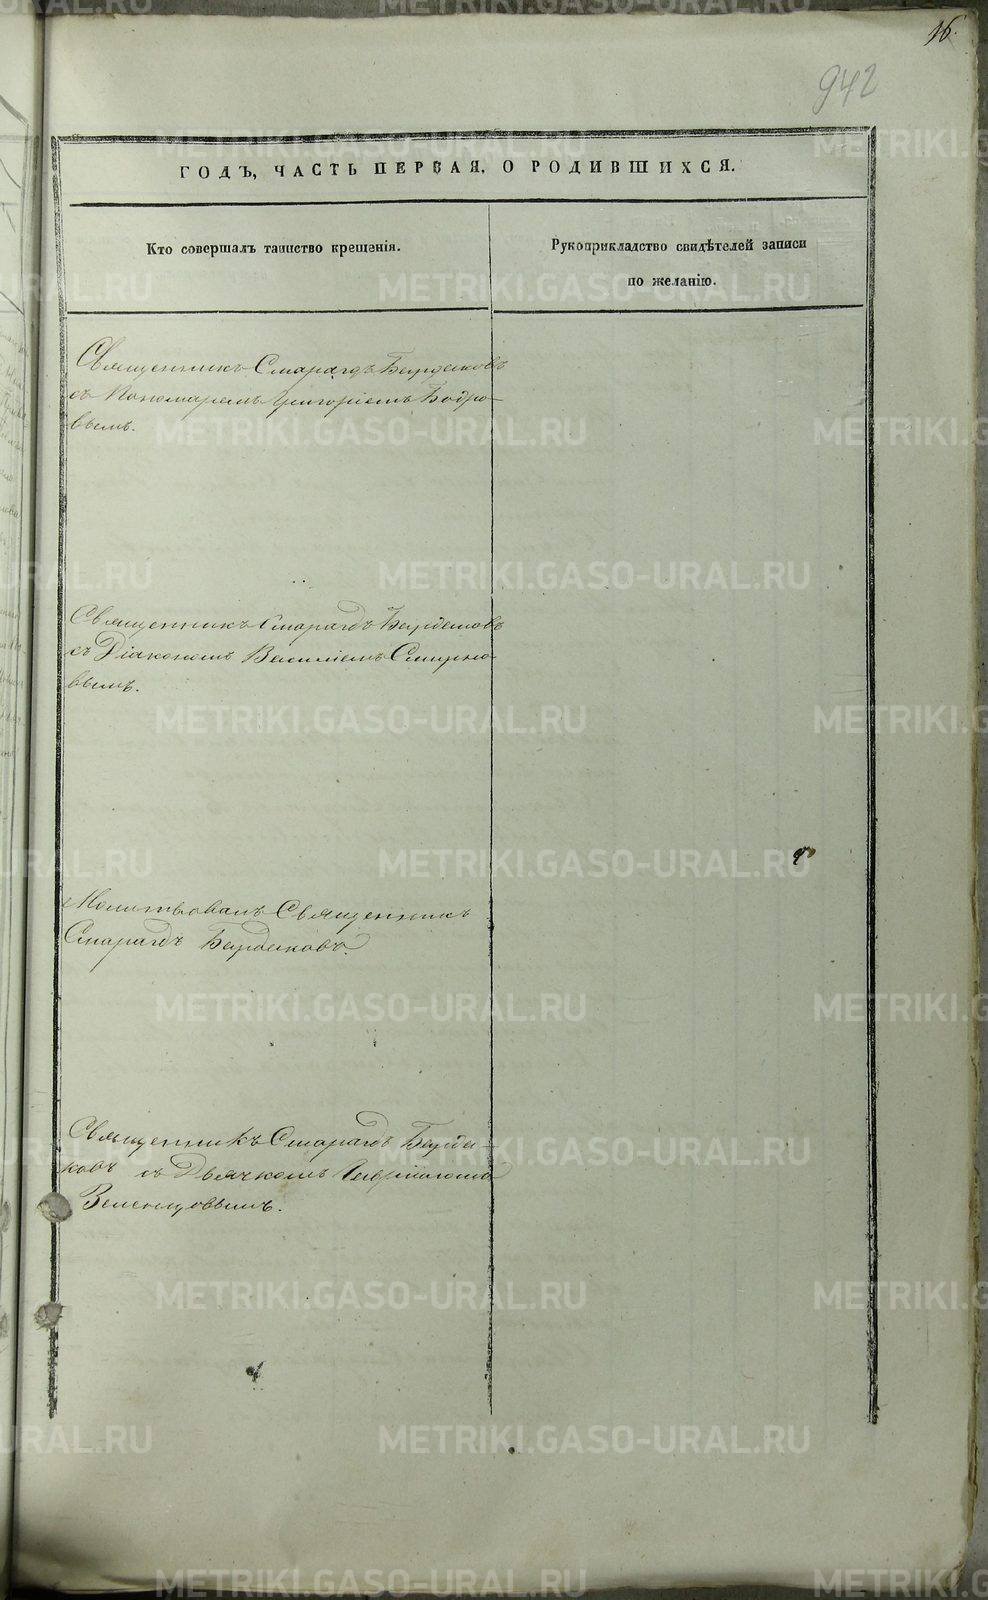 16.
942
ГОДЪ, ЧАСТЬ ПЕРВАЯ, О РОДИВШИХСЯ.
Кто совершалъ таинство крещенія.
Рукоприкладство свидѣтелей записи
по желанію.
Священникъ Смарагдъ Бирюковъ
съ Пономаремъ Григоріемъ Бодро-
вымъ.
Священникъ Смарагдъ
съ Діакономъ Василіемъ Смирно-
вымъ.
Молитвовалъ Священникъ
Смарагдъ
Священникъ Смарагдъ
ковъ съ Дьячкомъ
Зеленцовымъ.
METRIKI.GASO-URAL.RU